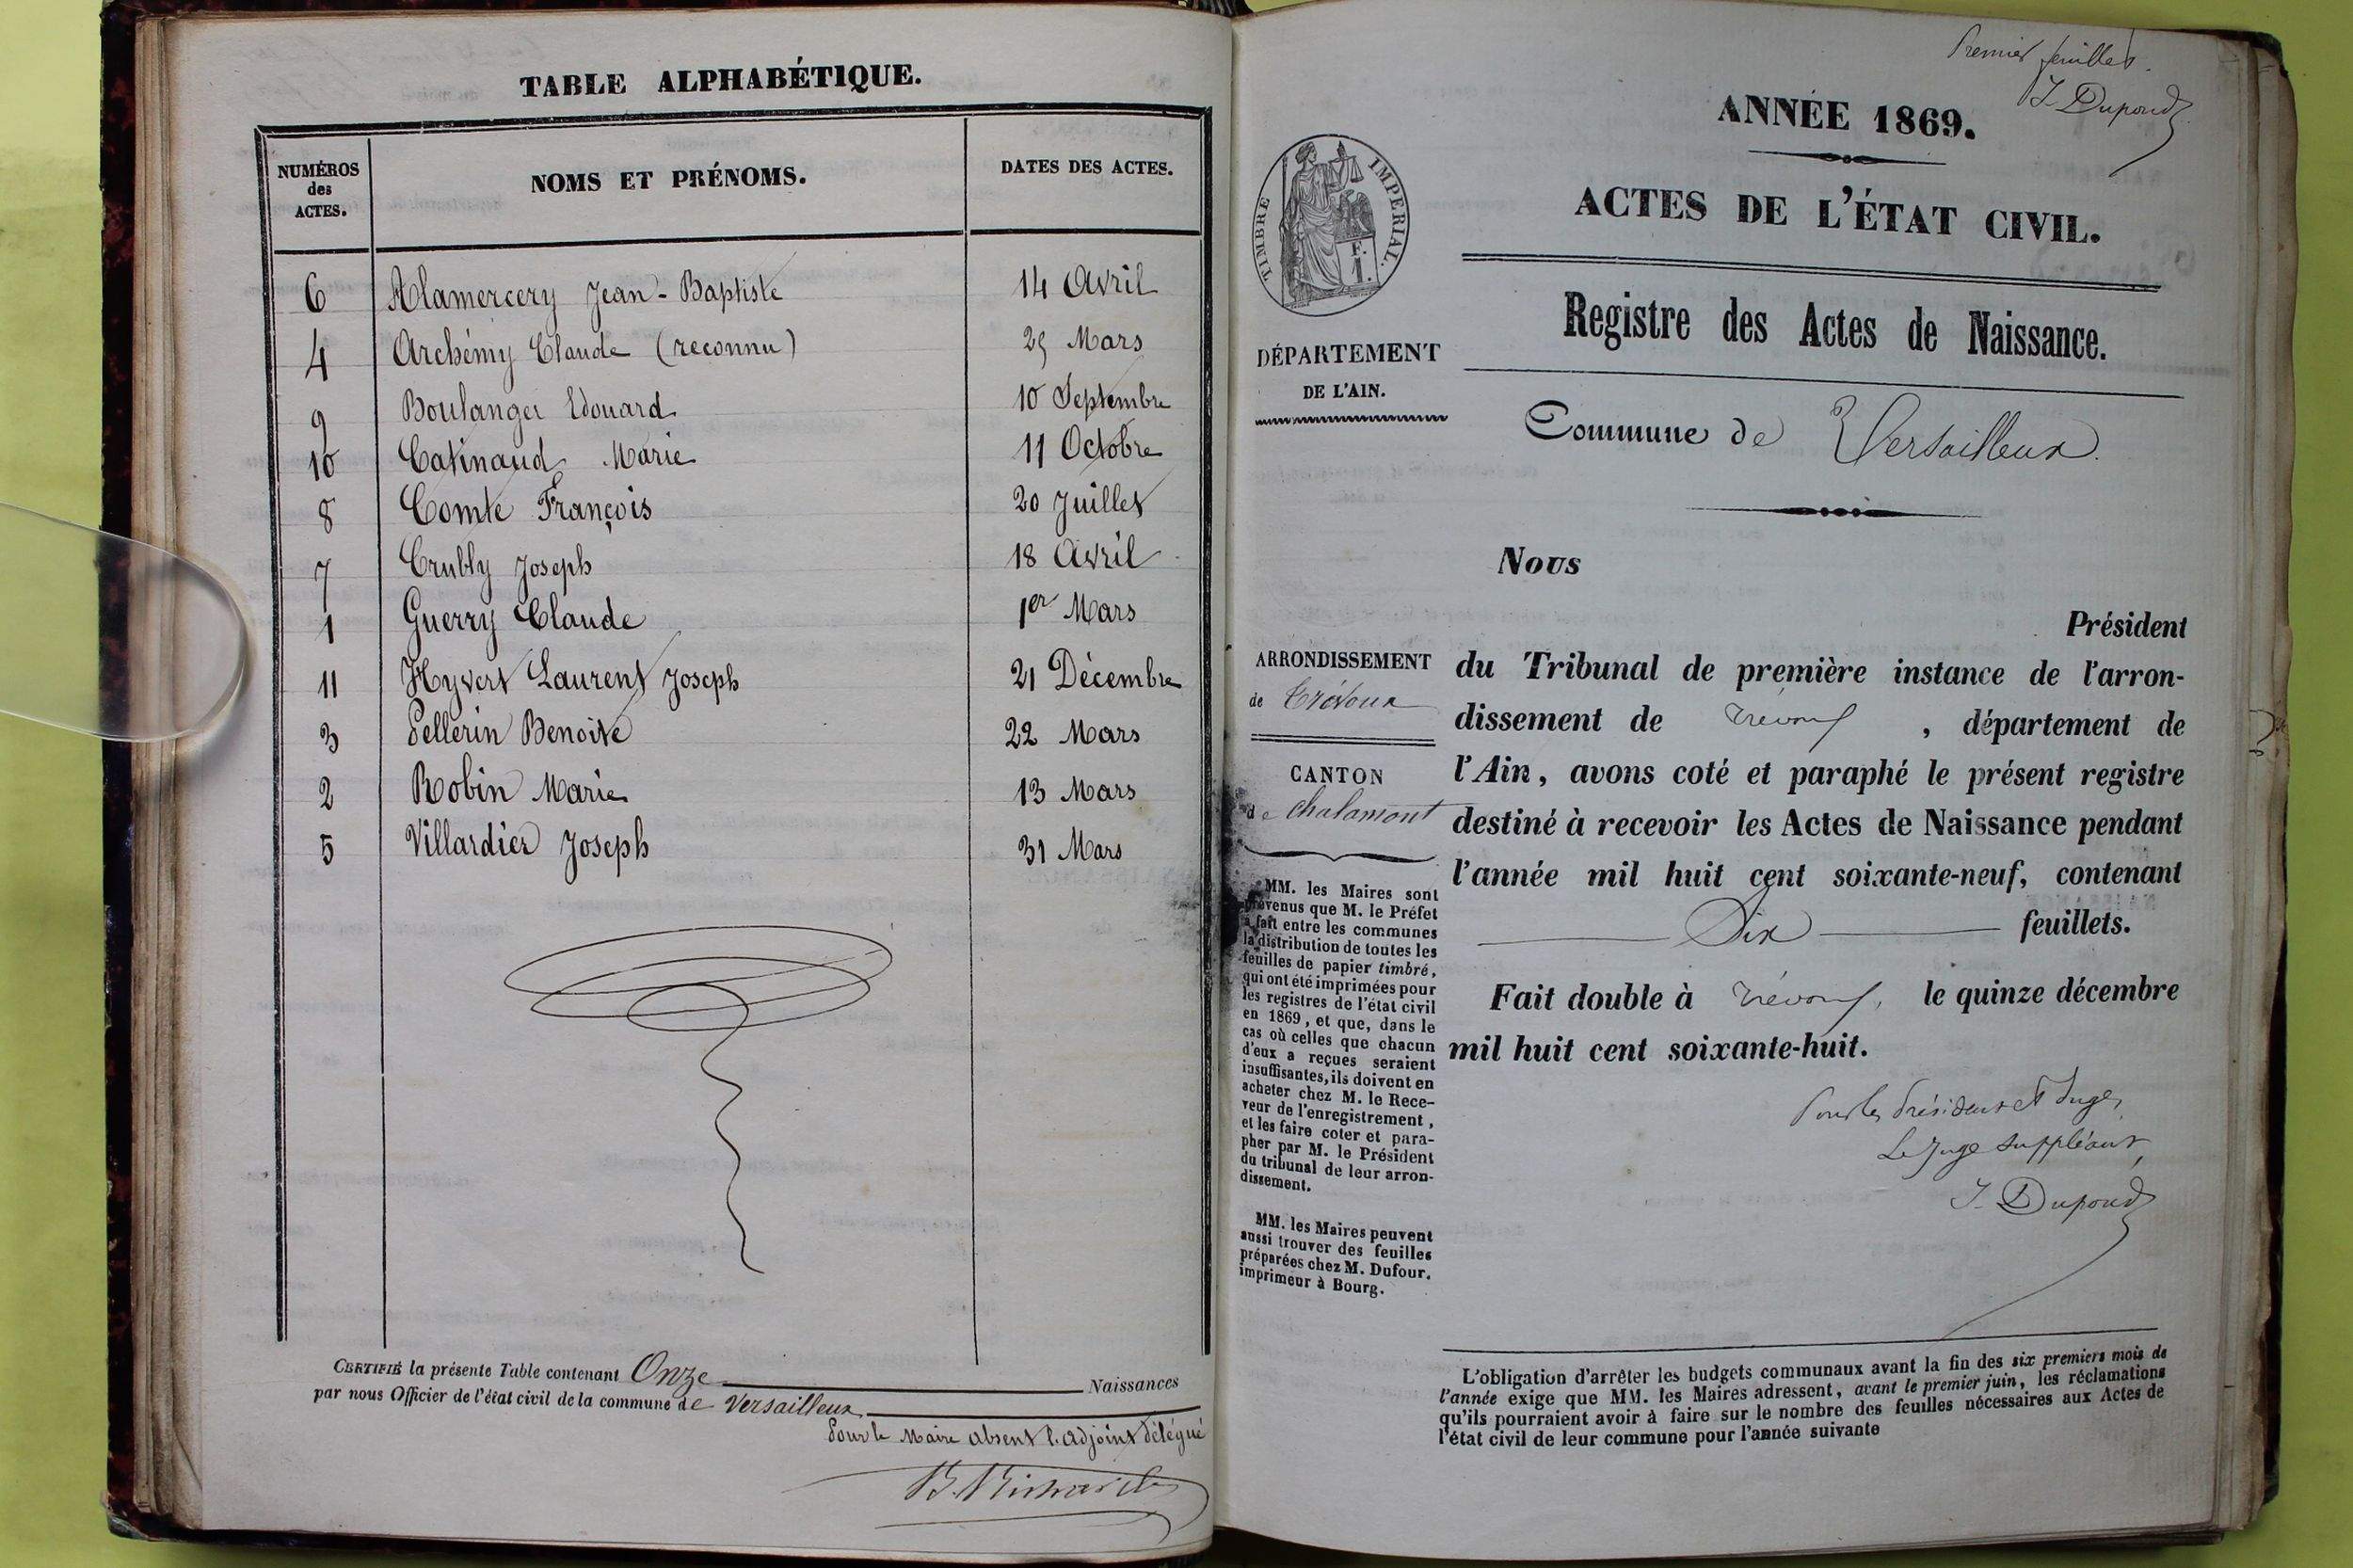 TABLE ALPHABÉTIQUE.
NUMÉROS
des
ACTES.
NOMS ET PRÉNOMS.
DATES DES ACTES.
6 Alamercery Jean-Baptiste 14 Avril
4 Archémy Claude (reconnu) 25 Mars
9 Boulanger Edouard 10 Septembre
10 Catinaud Marie 11 Octobre
8 Comte François 20 Juillet
7 Crubly Joseph 18 Avril
1 Guerry Claude 1er Mars
11 Hyvert Laurent Joseph 21 Décembre
3 Pellerin Benoite 22 Mars
2 Robin Marie 13 Mars
5 Villardier Joseph 31 Mars
CERTIFIÉ la présente Table contenant Onze Naissances
par nous Officier de l'état civil de la commune de Versailleux
Pour le Maire absent l'adjoint délégué
Premier feuillet.
J. Dupond
ANNÉE 1869.
ACTES DE L'ÉTAT CIVIL.
TIMBRE IMPERIAL.
F.
1.
Registre des Actes de Naissance.
DÉPARTEMENT
DE L'AIN.
Commune de Versailleux.
Nous
Président
ARRONDISSEMENT
de Trévoux
CANTON
de Chalamont
du Tribunal de première instance de l'arron-
dissement de Trévoux, département de
l'Ain, avons coté et paraphé le présent registre
destiné à recevoir les Actes de Naissance pendant
l'année mil huit cent soixante-neuf, contenant
Six feuillets.
Fait double à Trévoux, le quinze décembre
mil huit cent soixante-huit.
Pour les Présidents et Juges,
Le Juge suppléant,
J. Dupond
MM. les Maires sont
prévenus que M. le Préfet
a fait entre les communes
la distribution de toutes les
feuilles de papier timbré,
qui ont été imprimées pour
les registres de l'état civil
en 1869, et que, dans le
cas où celles que chacun
d'eux a reçues seraient
insuffisantes, ils doivent en
acheter chez M. le Rece-
veur de l'enregistrement,
et les faire coter et para-
pher par M. le Président
du tribunal de leur arron-
dissement.
MM. les Maires peuvent
aussi trouver des feuilles
préparées chez M. Dufour,
imprimeur à Bourg.
L'obligation d'arrêter les budgets communaux avant la fin des six premiers mois de
l'année exige que MM. les Maires adressent, avant le premier juin, les réclamations
qu'ils pourraient avoir à faire sur le nombre des feuilles nécessaires aux Actes de
l'état civil de leur commune pour l'année suivante